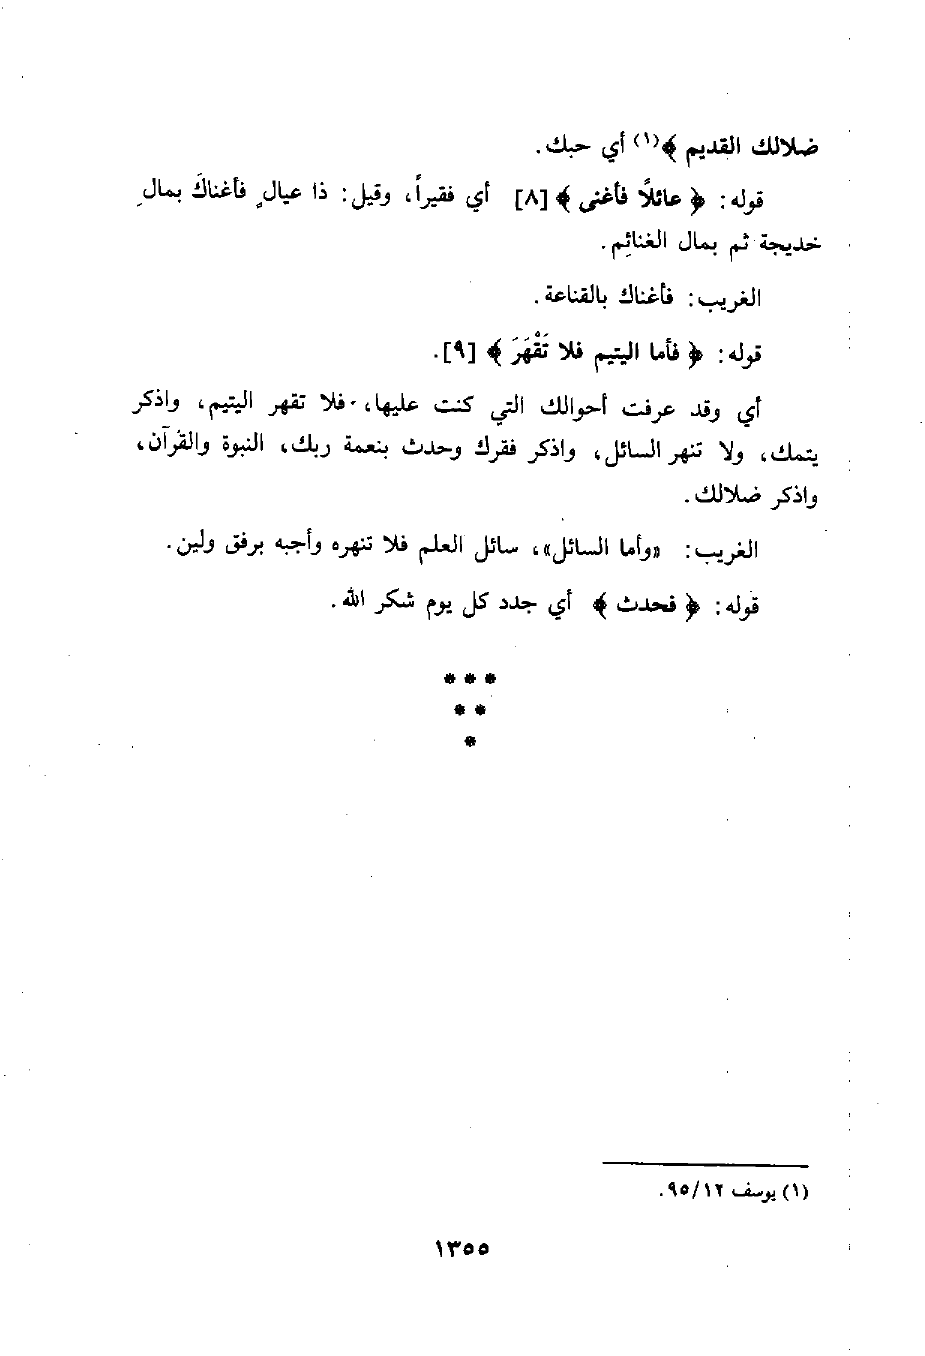 ضلالك القديم ﴾(١) أي حبك.
قوله: ﴿ عائلاً فأغنى ﴾ [٨] أي فقيراً، وقيل: ذا عيالٍ فأغناكَ بمالِ
خديجة ثم بمال الغنائِم.
الغريب: فأغناك بالقناعة.
قوله: ﴿ فأما اليتيم فلا تَقْهَرَ ﴾ [٩].
أي وقد عرفت أحوالك التي كنت عليها، فلا تقهر اليتيم، واذكر
يتمك، ولا تنهر السائل، واذكر فقرك وحدث بنعمة ربك، النبوة والقرآن،
واذكر ضلالك.
الغريب: «وأما السائل»، سائل العلم فلا تنهره وأجبه برفق ولين.
قوله: ﴿ فحدث ﴾ أي جدد كل يوم شكر الله.
* * *
* *
*
(١) يوسف ١٢/ ٩٥.
١٣٥٥